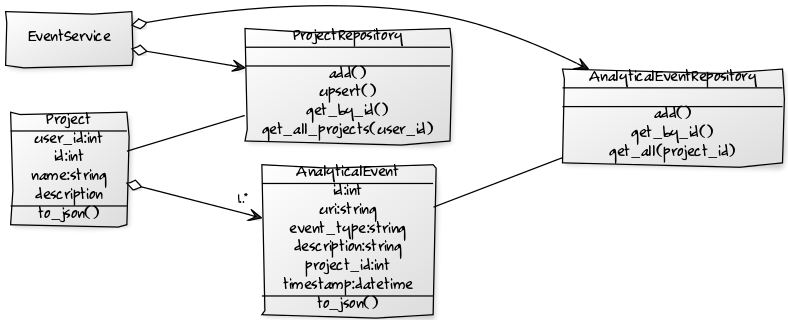 EventService
ProjectRepository
add()
upsert()
get_by_id()
get_all_projects(user_id)
AnalyticalEventRepository
add()
get_by_id()
get_all(project_id)
Project
user_id:int
id:int
name:string
description
to_json()
1..*
AnalyticalEvent
id:int
uri:string
event_type:string
description:string
project_id:int
timestamp:datetime
to_json()